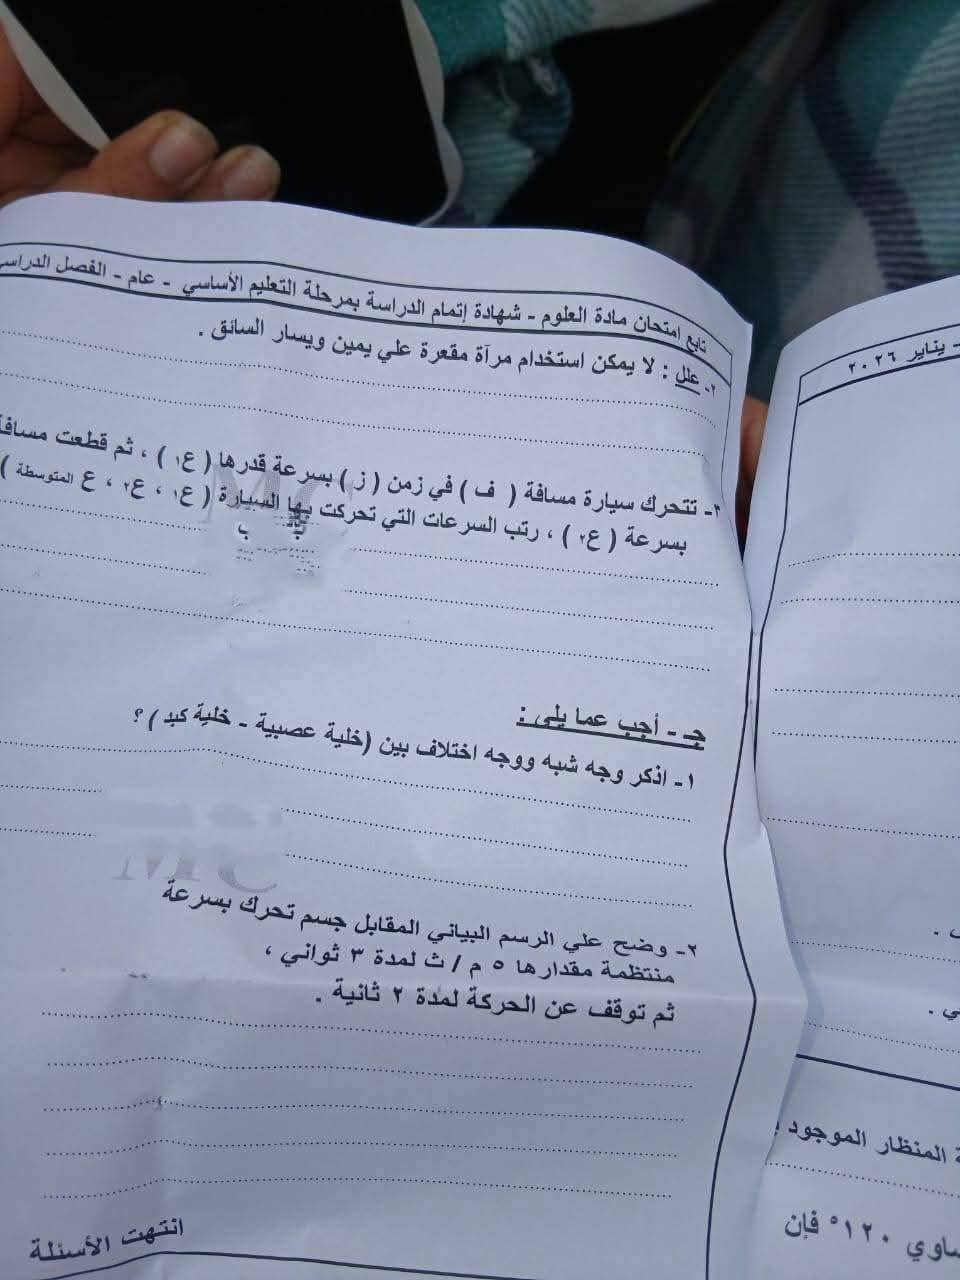 تابع امتحان مادة العلوم - شهادة إتمام الدراسة بمرحلة التعليم الأساسي - عام - الفصل الدراسي
٢- علل : لا يمكن استخدام مرآة مقعرة علي يمين ويسار السائق .
٣- تتحرك سيارة مسافة ( ف ) في زمن ( ز ) بسرعة قدرها ( ع١ ) ، ثم قطعت مسافة
بسرعة ( ع٢ ) ، رتب السرعات التي تحركت بها السيارة ( ع١ ، ع٢ ، ع المتوسطة )
جـ - أجب عما يلي :
١- اذكر وجه شبه ووجه اختلاف بين (خلية عصبية - خلية كبد ) ؟
٢- وضح علي الرسم البياني المقابل جسم تحرك بسرعة
منتظمة مقدارها ٥ م / ث لمدة ٣ ثواني ،
ثم توقف عن الحركة لمدة ٢ ثانية .
انتهت الأسئلة
- يناير ٢٠٢٦
المنظار الموجود
١٢٠° فإن